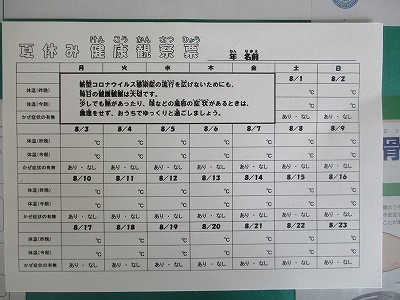 けんこうかんさつひょう
夏休み健康観察票
ねん なまえ
年 名前
月 火 水 木 金 土 日
8/1 8/2
新型コロナウイルス感染症の流行を広げないためにも、
毎日の健康観察は大切です。
少しでも熱があったり、咳などの風邪の症状があるときは、
無理をせず、おうちでゆっくりと過ごしましょう。
体温(昨晩) ℃ ℃
体温(今朝) ℃ ℃
かぜ症状の有無 あり・なし あり・なし
8/3 8/4 8/5 8/6 8/7 8/8 8/9
体温(昨晩) ℃ ℃ ℃ ℃ ℃ ℃ ℃
体温(今朝) ℃ ℃ ℃ ℃ ℃ ℃ ℃
かぜ症状の有無 あり・なし あり・なし あり・なし あり・なし あり・なし あり・なし あり・なし
8/10 8/11 8/12 8/13 8/14 8/15 8/16
体温(昨晩) ℃ ℃ ℃ ℃ ℃ ℃ ℃
体温(今朝) ℃ ℃ ℃ ℃ ℃ ℃ ℃
かぜ症状の有無 あり・なし あり・なし あり・なし あり・なし あり・なし あり・なし あり・なし
8/17 8/18 8/19 8/20 8/21 8/22 8/23
体温(昨晩) ℃ ℃ ℃ ℃ ℃ ℃ ℃
体温(今朝) ℃ ℃ ℃ ℃ ℃ ℃ ℃
かぜ症状の有無 あり・なし あり・なし あり・なし あり・なし あり・なし あり・なし あり・なし
骨